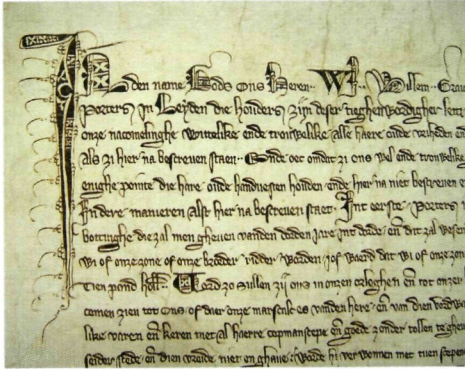 In den name Gods Ons Heren. Wi. Willem Grau
Poerters in Leyden die houders zijn deser tieghenwordigher lett
onze nacomelinghe wittelike ende trouwelike alle haere oude vriheden en
Als zi hier na bescreven staen. Ende oec omdat zi ons wel ende trouwelike
enighe pointe die hare oude handvesten houden ende hier na niet bescreven e
In dere manieren alst hier na bescreven staet. Int eerste. Poerters
bottinghe die zal men gheven vanden doden jare int dode. en dit zal wesen
wi of onze zone of onze broeder ridder worden jof waerd dat wi of onze zon
Tien pond holl. Voerd zo sullen zij ons in onzen orloghen en tot onzer
comen zien tot ons of daer onze marscalc es vanden here. en van dien
like varen en keren met al haerre copmanscepe en goede zonder tollen te ghe
seider stede. en dien vreide niet en ghave. Worde hi verwonnen met tuen scepen